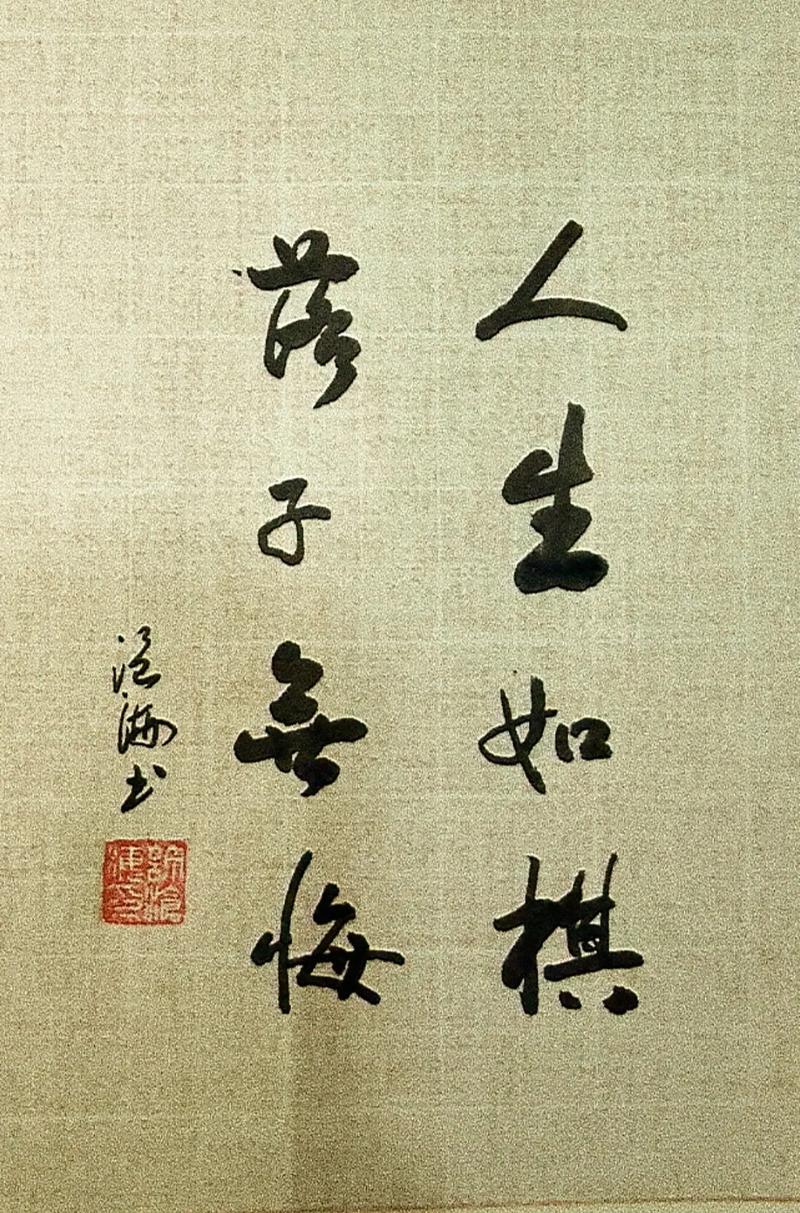 人生如棋
落子無悔
滄海书